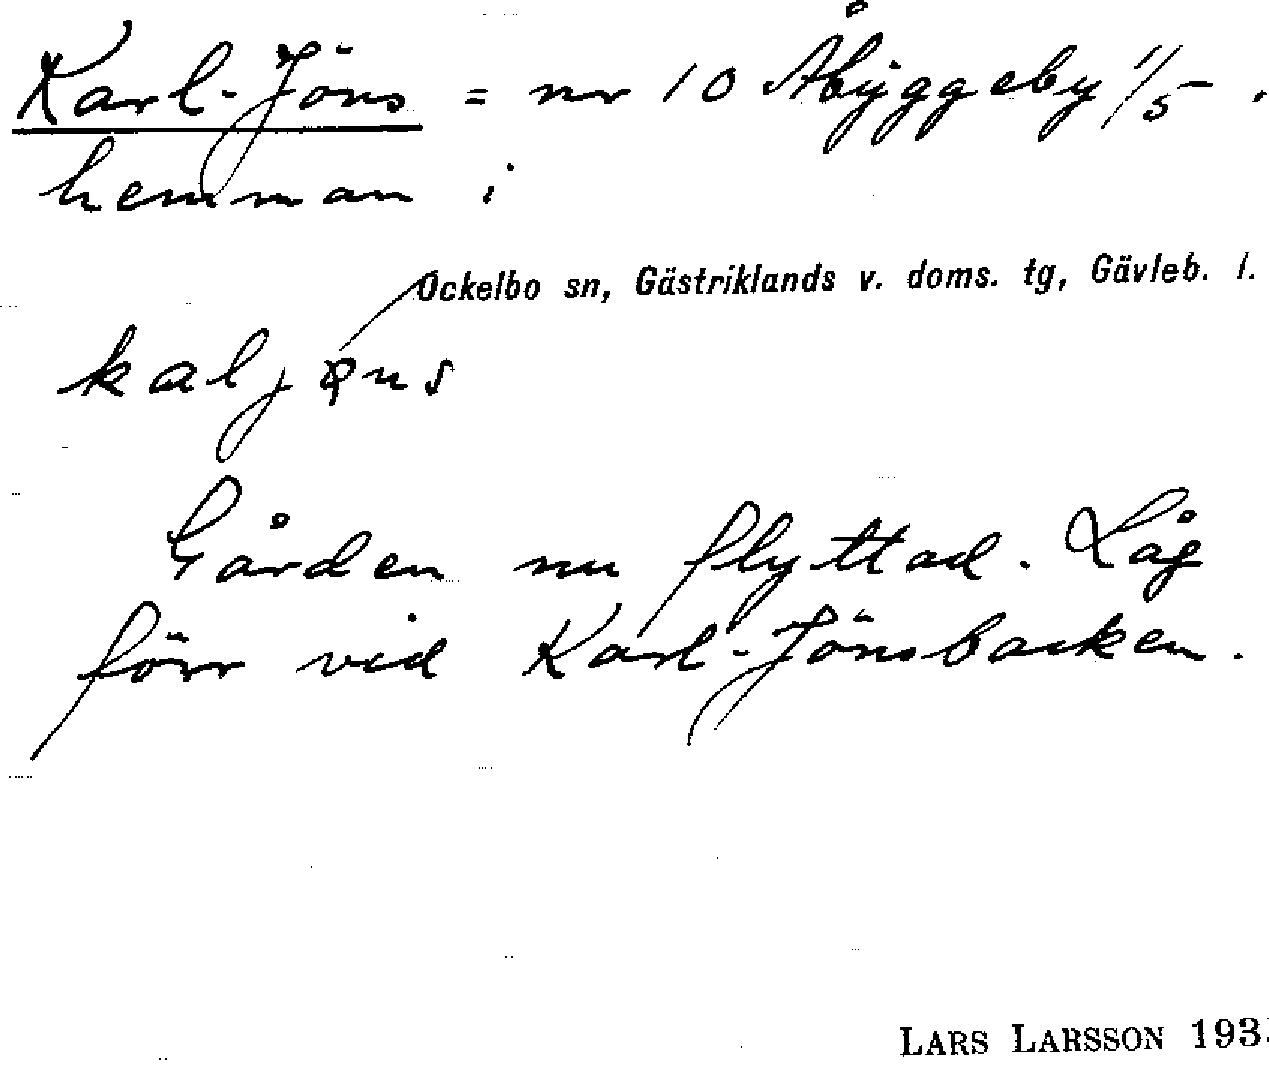 Karl-Jöns = nr 10 Åbyggeby 1/5.
hemman i
Ockelbo sn, Gästriklands v. doms. tg, Gävleb. l.
Gården nu flyttad. Låg
förr vid Karl-Jönsbacken.
LARS LARSSON 193